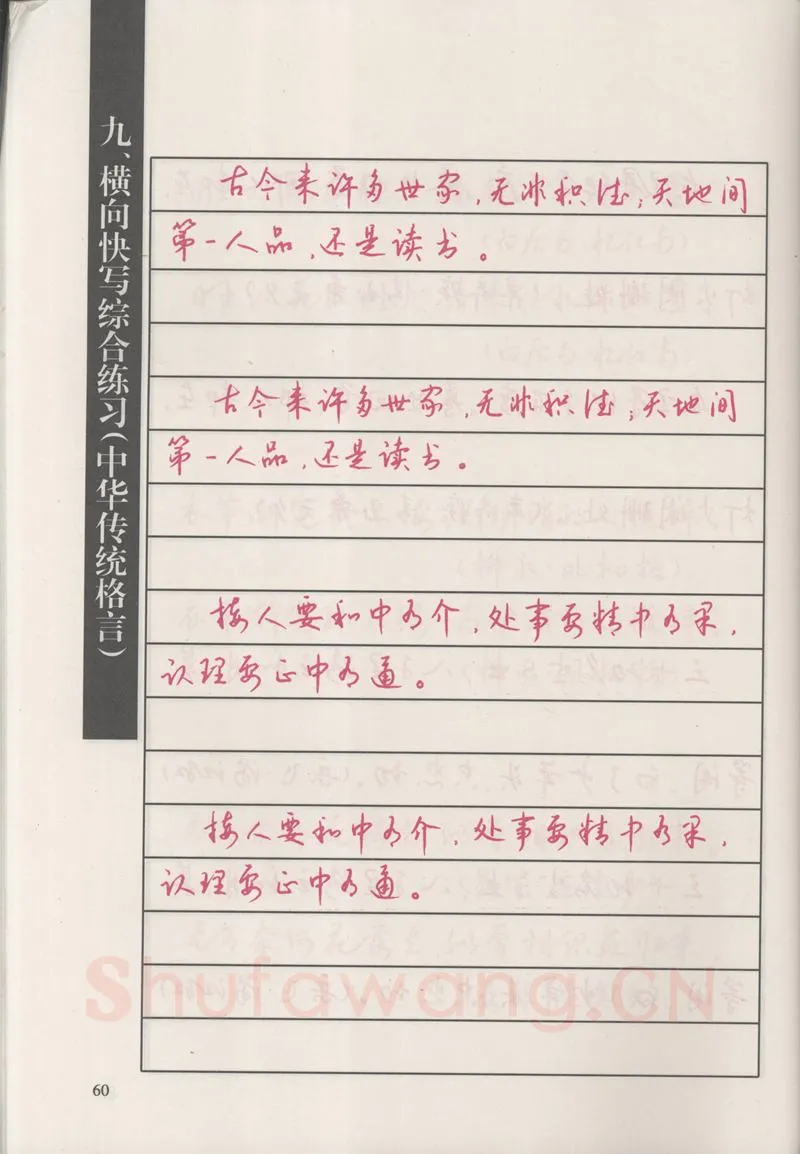 九、横向快写综合练习(中华传统格言)
古今来许多世家，无非积德；天地间
第一人品，还是读书。
古今来许多世家，无非积德；天地间
第一人品，还是读书。
接人要和中有介，处事要精中有果，
认理要正中有通。
接人要和中有介，处事要精中有果，
认理要正中有通。
Shufawang.CN
60